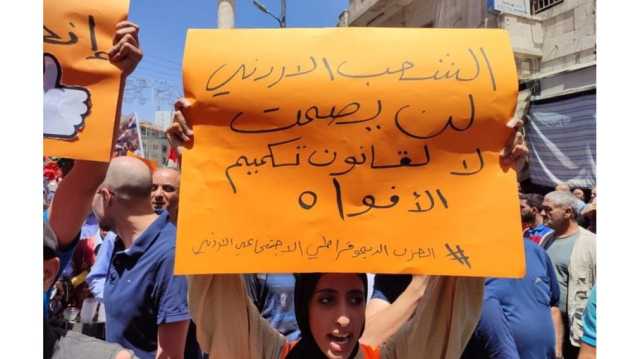 الشعب الاردني
لن يصمت
لا لقانون تكميم
الأفواه
# الحزب الديموقراطي الاجتماعي الاردني